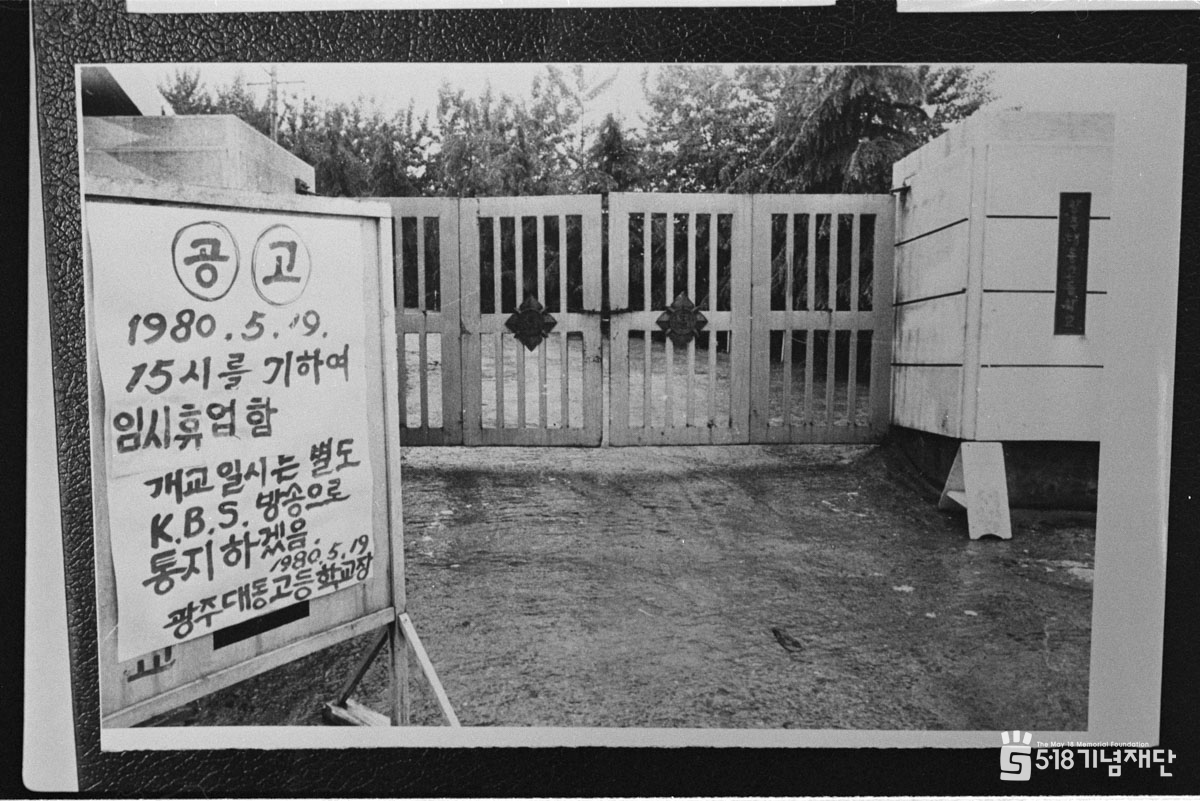 공고
1980.5.19.
15시를 기하여
임시휴업함
개교일시는 별도
K.B.S. 방송으로
통지하겠음.
1980.5.19
광주대동고등학교장
교
The May 18 Memorial Foundation
5·18기념재단